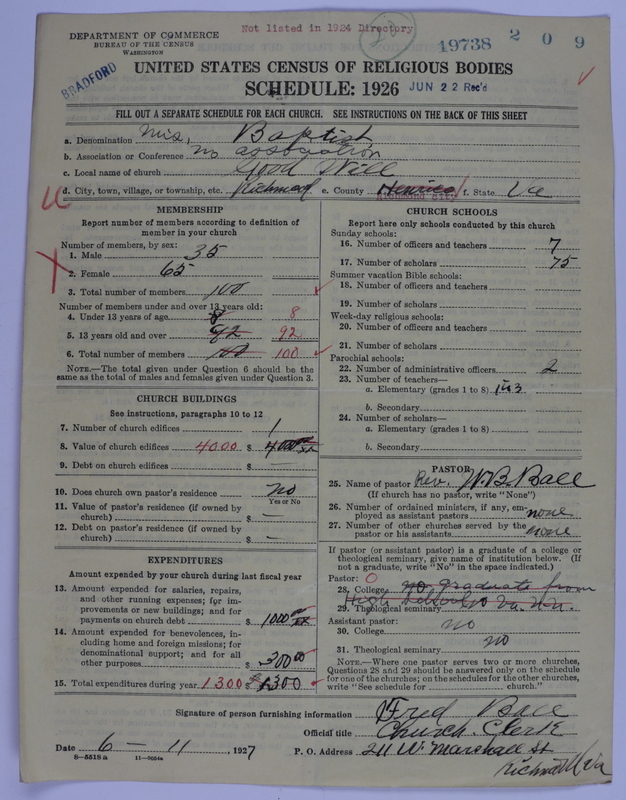 Not listed in 1924 Directory
DEPARTMENT OF COMMERCE
BUREAU OF THE CENSUS
WASHINGTON
19738 209
BRADFORD
UNITED STATES CENSUS OF RELIGIOUS BODIES
SCHEDULE: 1926 JUN 22 Rec'd
FILL OUT A SEPARATE SCHEDULE FOR EACH CHURCH. SEE INSTRUCTIONS ON THE BACK OF THIS SHEET
a. Denomination Baptist
b. Association or Conference no association
c. Local name of church Good Will
d. City, town, village, or township, etc. Richmond e. County Henrico f. State Va
MEMBERSHIP
Report number of members according to definition of
member in your church
Number of members, by sex:
1. Male 35
2. Female 65
3. Total number of members 100
Number of members under and over 13 years old:
4. Under 13 years of age 8 8
5. 13 years old and over 92 92
6. Total number of members 100 100
NOTE.—The total given under Question 6 should be the
same as the total of males and females given under Question 3.
CHURCH BUILDINGS
See instructions, paragraphs 10 to 12
7. Number of church edifices 1
8. Value of church edifices 4000 $ 4000
9. Debt on church edifices $ —
10. Does church own pastor's residence no
Yes or No
11. Value of pastor's residence (if owned by
church) $ —
12. Debt on pastor's residence (if owned by
church) $ —
EXPENDITURES
Amount expended by your church during last fiscal year
13. Amount expended for salaries, repairs,
and other running expenses; for im-
provements or new buildings; and for
payments on church debt $ 1000
14. Amount expended for benevolences, in-
cluding home and foreign missions; for
denominational support; and for all
other purposes $ 300 00
15. Total expenditures during year 1300 $ 1300
CHURCH SCHOOLS
Report here only schools conducted by this church
Sunday schools:
16. Number of officers and teachers 7
17. Number of scholars 75
Summer vacation Bible schools:
18. Number of officers and teachers
19. Number of scholars
Week-day religious schools:
20. Number of officers and teachers
21. Number of scholars
Parochial schools:
22. Number of administrative officers 2
23. Number of teachers—
a. Elementary (grades 1 to 8)
b. Secondary
24. Number of scholars—
a. Elementary (grades 1 to 8)
b. Secondary
PASTOR
25. Name of pastor Rev. W. B. Ball
(If church has no pastor, write "None")
26. Number of ordained ministers, if any, em-
ployed as assistant pastors none
27. Number of other churches served by the
pastor or his assistants none
If pastor (or assistant pastor) is a graduate of a college or
theological seminary, give name of institution below. (If
not a graduate, write "No" in the space indicated.)
Pastor: O
28. College no graduate from
29. Theological seminary High School
Assistant pastor:
30. College no
31. Theological seminary no
NOTE.—Where one pastor serves two or more churches,
Questions 28 and 29 should be answered only on the schedule
for one of the churches; on the schedules for the other churches,
write "See schedule for church."
Signature of person furnishing information Fred Ball
Official title Church Clerk
Date 6 — 11, 1927 P. O. Address 211 W. Marshall St
8—5518a 11—9054a Richmond Va